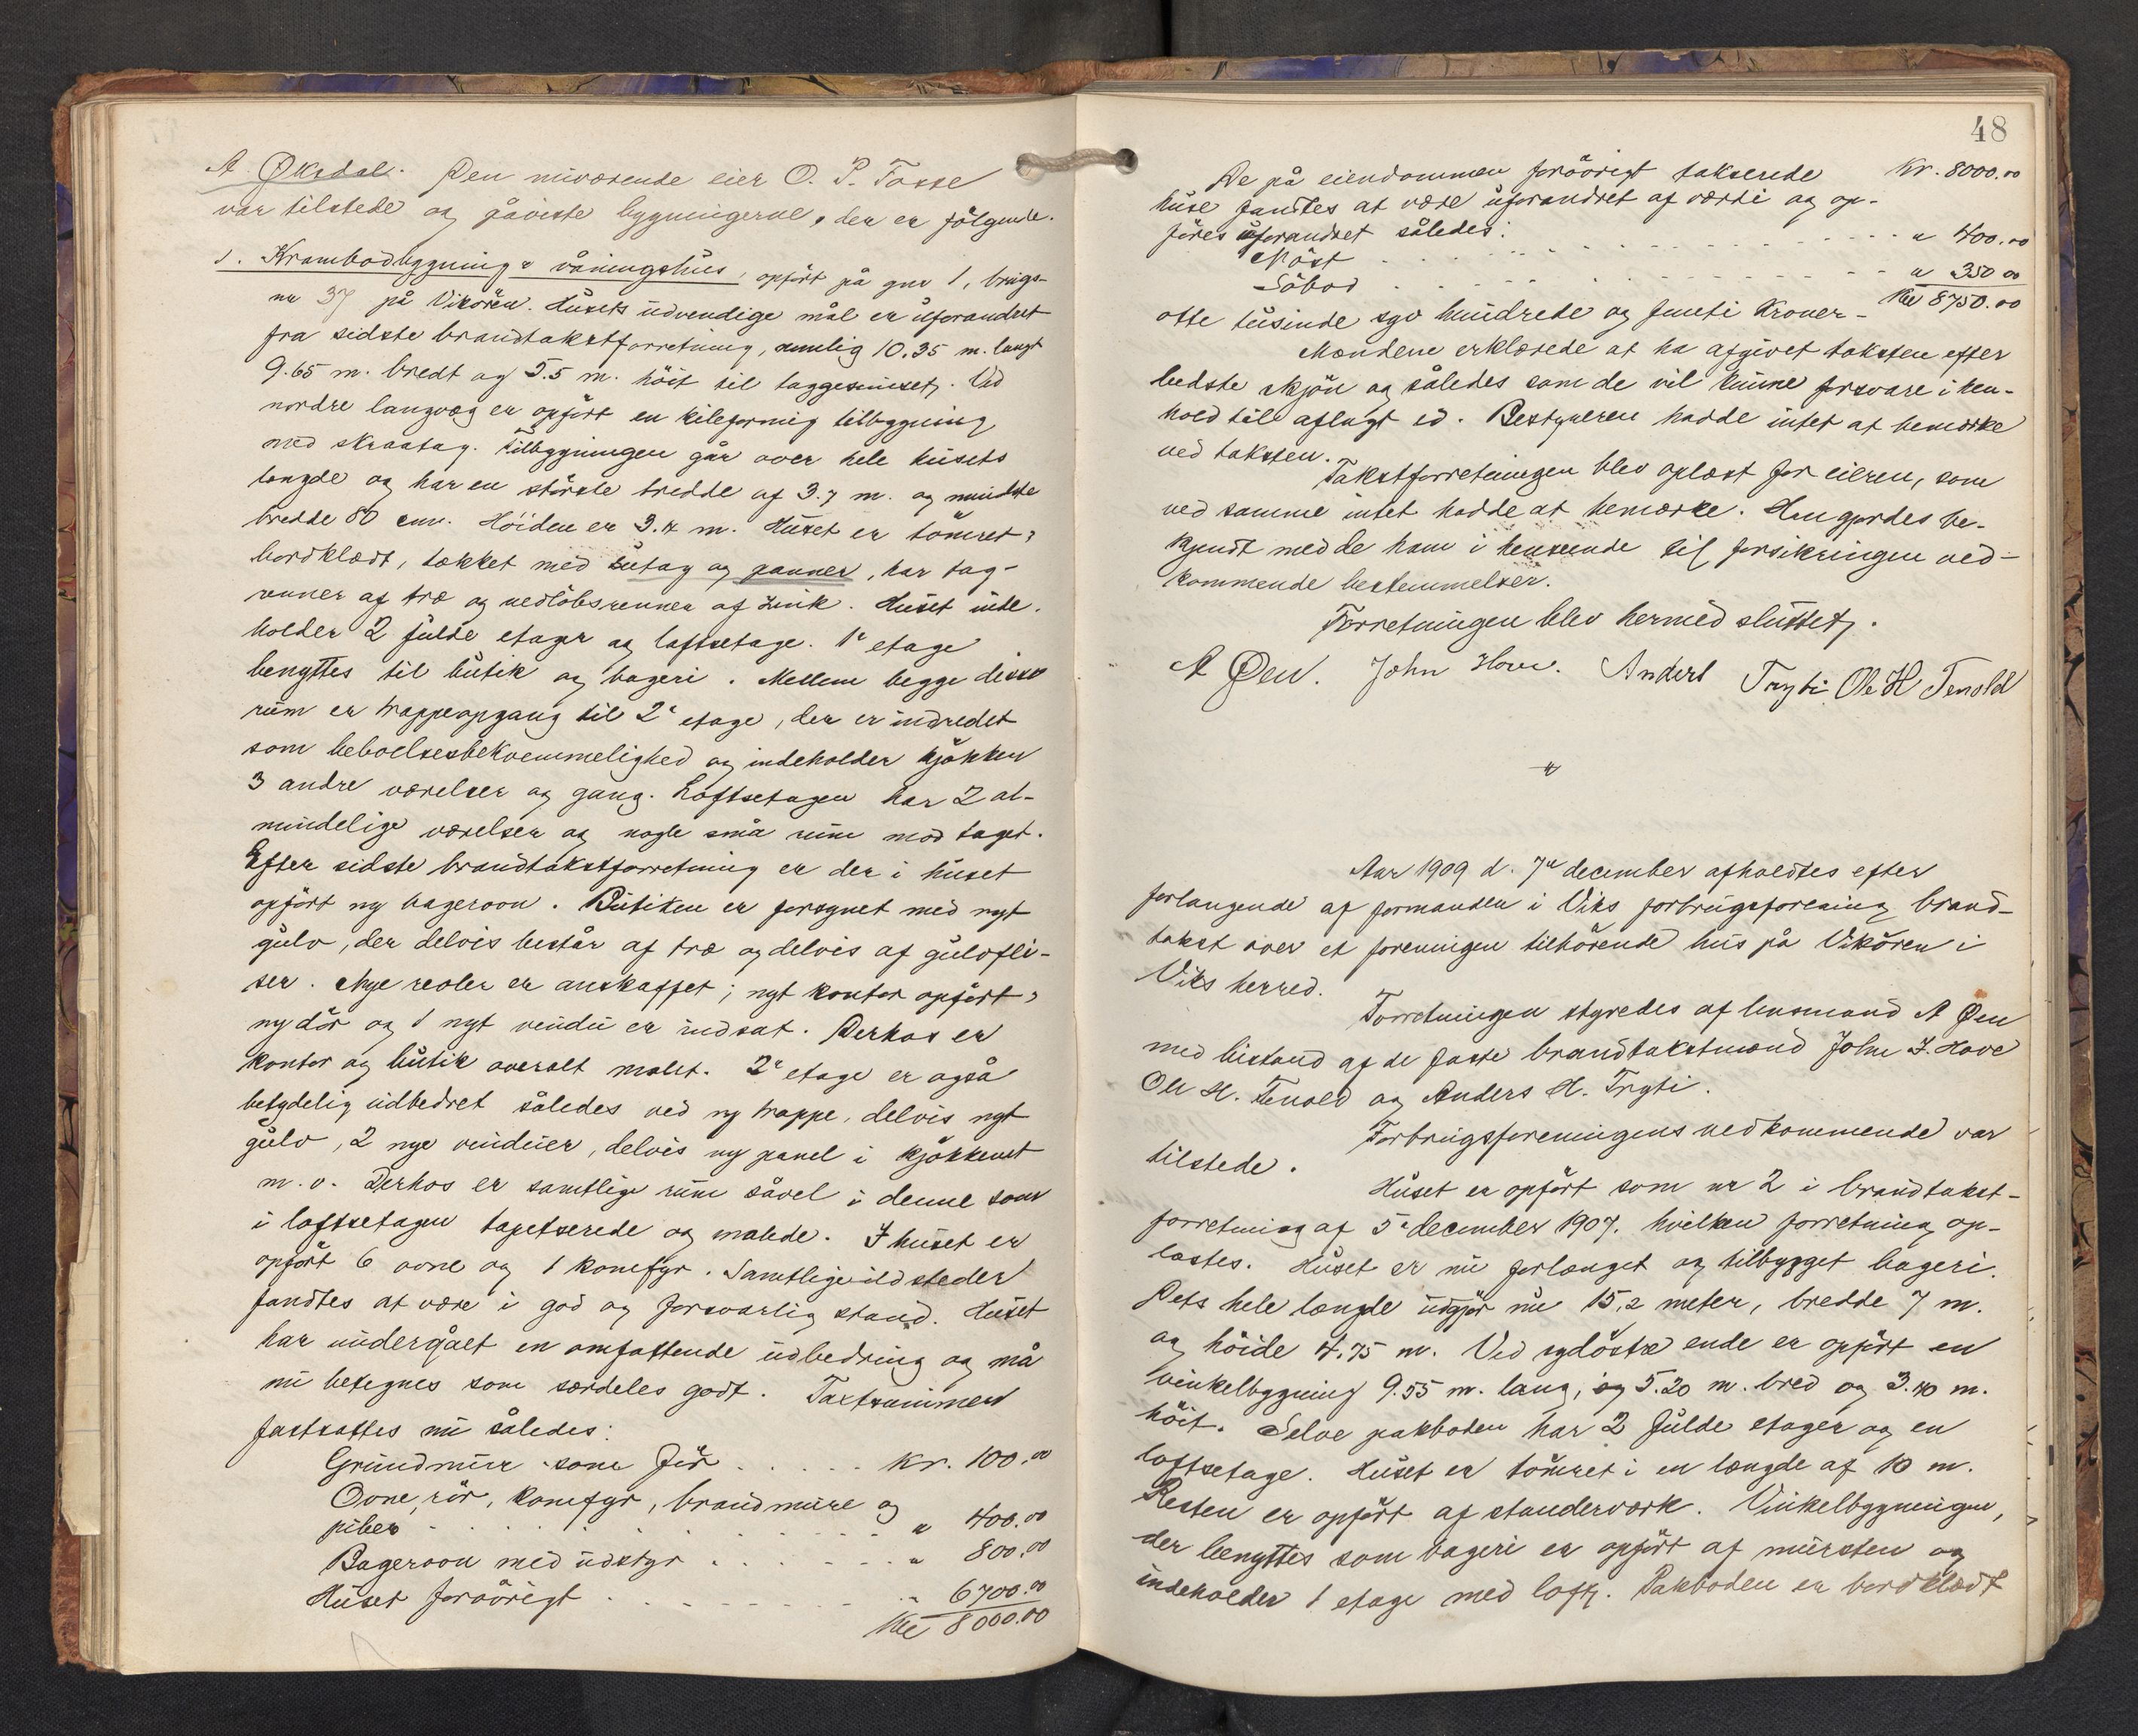 A Øksdal. Den nuværende eier O. P. Tosse
var tilstede og påviste bygningerne, der er følgende.
1. Krambodbygning & våningshus, opført på gnr 1, brugs-
nr 37 på Vikøren. Husets udvendige mål er uforandret
fra sidste brandtakstforretning, nemlig 10.35 m. langt
9.65 m. bredt og 5.5 m. höit til taggesimset. Ved
nordre langvæg er opført en kileformig tilbygning
med skraatag. Tilbygningen går over hele husets
længde og har en største bredde af 3.7 m. og mindste
bredde 80 cm. Höiden er 3.4 m. Huset er tömret,
bordklædt, tækket med sutag og panner, har tag-
renner af træ og nedløbsrenner af zink. Huset inde-
holder 2 fulde etager og loftsetage. 1e etage
benyttes til butik og bageri. Mellem begge disse
rum er trappeopgang til 2e etage, der er indredet
som beboelsesbekvemmelighed og indeholder kjøkken
3 andre værelser og gang. Loftsetagen har 2 al-
mindelige værelser og nogle små rum mod taget.
Efter sidste brandtakstforretning er der i huset
opført ny bagerovn. Butiken er forsynet med nyt
gulv, der delvis består af træ og delvis af gulvfli-
ser. Nye reoler er anskaffet; nyt kontor opført,
ny dör og 1 nyt vindu er indsat. Derhos er
kontor og butik overalt malet. 2e etage er også
betydelig udbedret således ved ny trappe, delvis nyt
gulv, 2 nye vinduer, delvis ny panel i kjøkkenet
m. v. Derhos er samtlige rum såvel i denne som
i loftsetagen tapetserede og malede. I huset er
opført 6 ovne og 1 komfyr. Samtlige ildsteder
fandtes at være i god og forsvarlig stand. Huset
har undergået en omfattende udbedring og må
nu betegnes som særdeles godt. Taxtsummen
fastsattes nu således:
Grundmur som för . . . . . Kr. 100.00
Ovne, rör, komfyr, brandmure og
piber . . . . . . . . . . " 400.00
Bagerovn med udstyr . . . . . . " 800.00
Huset forøvrigt . . . . . . . . " 6700.00
Kr 8000.00
48
De på eiendommen forøvrigt takserede Kr. 8000.00
huse fandtes at være uforandret af værdi og op-
føres uforandret således:
Nöst . . . . . . . . . . " 400.00
Söbod . . . . . . . . . . " 350 00
otte tusinde syv hundrede og femti Kroner - Kr 8750.00
Mændene erklærede at ha afgivet taksten efter
bedste skjön og således som de vil kunne forsvare i hen-
hold til aflagt ed. Bestyreren hadde intet at bemærke
ved taksten.
Takstforretningen blev oplæst for eieren, som
ved samme intet hadde at bemærke. Han gjordes be-
kjendt med de ham i henseende til forsikringen ved-
kommende bestemmelser.
Forretningen blev hermed sluttet.
A Øen. John Hove. Anders Tryti Ole H Tenold
Aar 1909 d. 7de december afholdtes efter
forlangende af formanden i Viks forbrugsforening brand-
takst over et foreningen tilhørende hus på Vikøren i
Viks herred.
Forretningen styredes af lensmand A Øen
med bistand af de faste brandtakstmænd John I. Hove
Ole H. Tenold og Anders H. Tryti.
Forbrugsforeningens vedkommende var
tilstede.
Huset er opført som nr 2 i brandtakst-
forretning af 5e december 1907. hvilken forretning op-
læstes. Huset er nu forlænget og tilbygget bageri.
Dets hele længde udgjör nu 15,2 meter, bredde 7 m.
og höide 4.75 m. Ved sydöstre ende er opført en
vinkelbygning 9.55 m. lang, og 5.20 m. bred og 3.40 m.
höit. Selve pakboden har 2 fulde etager og en
loftsetage. Huset er tömret i en længde af 10 m.
Resten er opført af standerværk. Vinkelbygningen,
der benyttes som bageri er opført af mursten og
indeholder 1 etage med loft. Pakboden er bordklædt